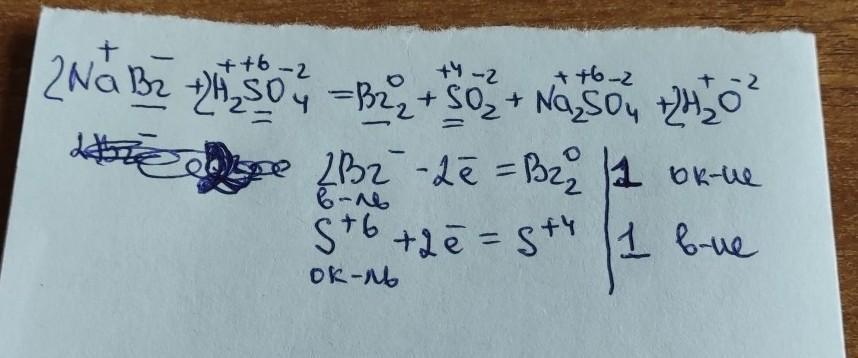 2Na⁺Br⁻ + 2H₂⁺S⁺⁶O₄⁻² = Br₂⁰ + S⁺⁴O₂⁻² + Na₂⁺S⁺⁶O₄⁻² + 2H₂⁺O⁻²
2Br⁻ - 2ē = Br₂⁰ | 1 ок-ие
в-ль
S⁺⁶ + 2ē = S⁺⁴ | 1 в-ие
ок-ль